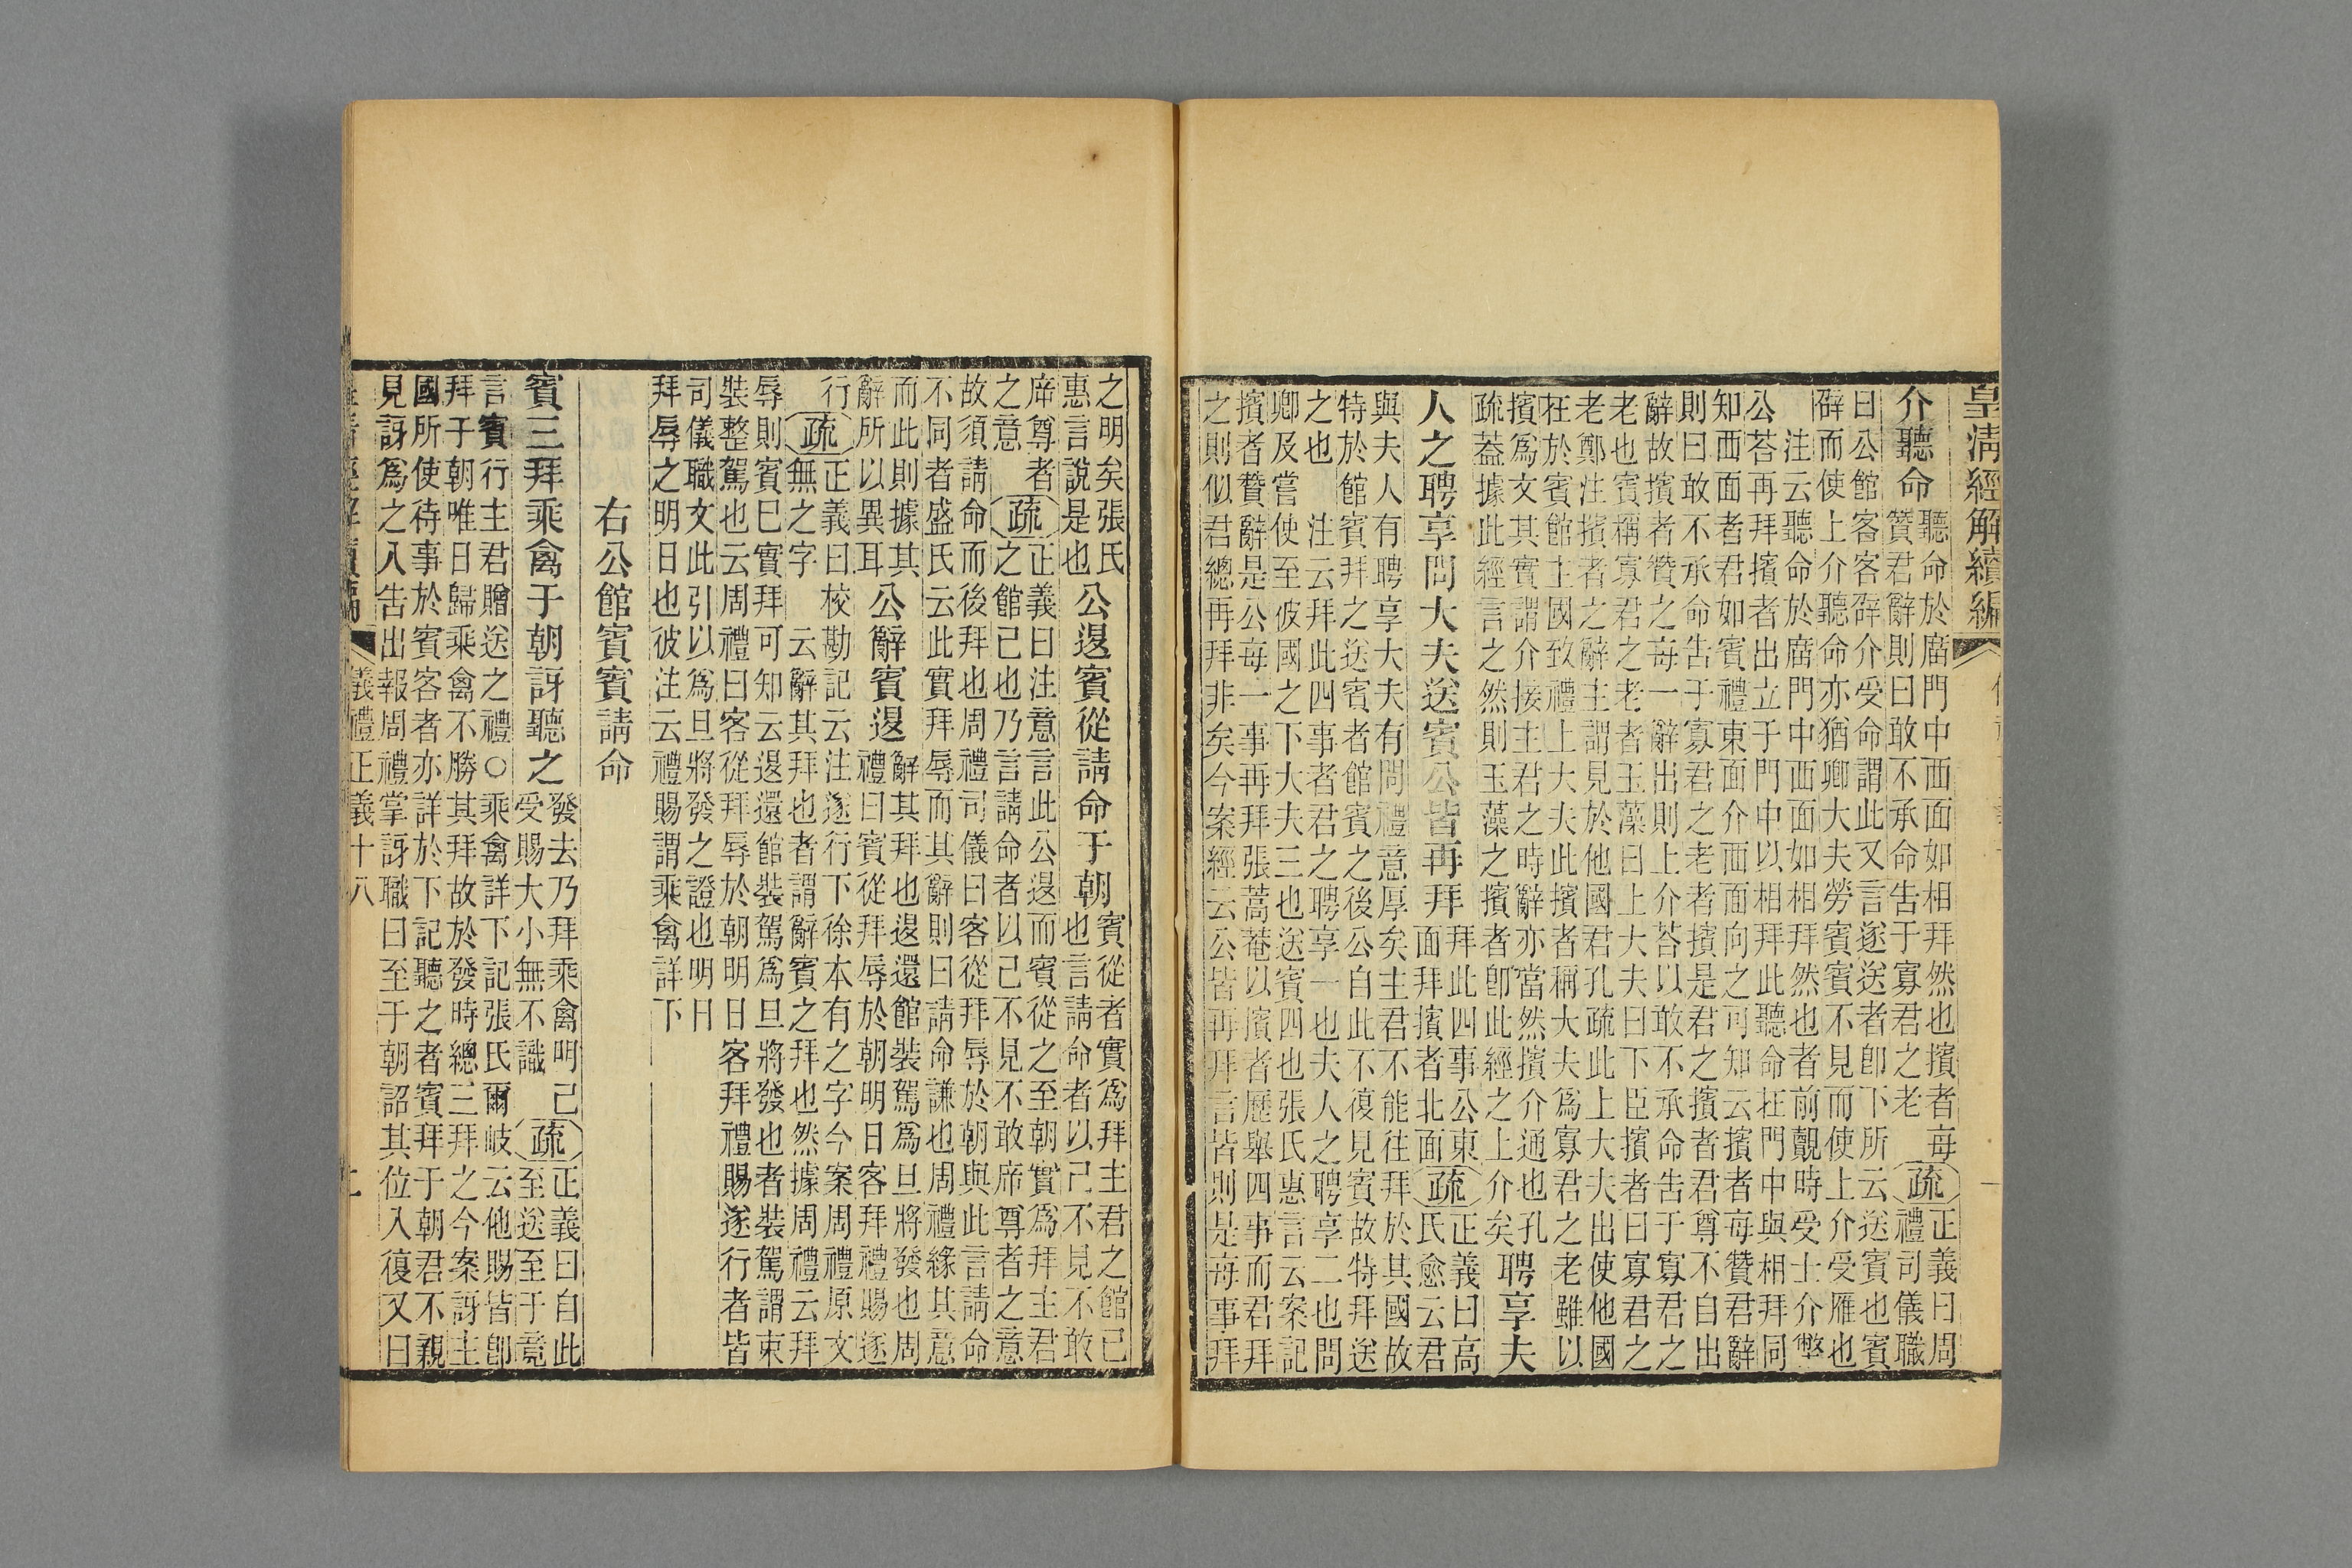 皇清經解續編
介聽命
聽命於庿門中西面如相拜然也擯者每
贊君辭則曰敢不承命告于寡君之老
疏
正義曰周
禮司儀職
曰公館客客辟介受命謂此又言遂送者卽下所云送賓也賓
辟而使上介聽命亦猶卿大夫勞賓賓不見而使上介受雁也
注云聽命於庿門中西面如相拜然也者前覿時受士介幣
公荅再拜擯者出立于門中以相拜此聽命在門中與相拜同
知西面者君如賓禮東面介西面向之可知云擯者每贊君辭
則曰敢不承命告于寡君之老者擯是君之擯者君尊不自出
辭故擯者贊之每一辭出則上介荅以敢不承命告于寡君之
老也賓稱寡君之老者玉藻曰上大夫曰下臣擯者曰寡君之
老鄭注擯者之辭主謂見於他國君孔疏此上大夫出使他國
在於賓館主國致禮上大夫此擯者稱大夫爲寡君之老雖以
擯爲文其實謂介接主君之時辭亦當然擯介通也孔
疏葢據此經言之然則玉藻之擯者卽此經之上介矣
聘享夫
人之聘享問大夫送賓公皆再拜
拜此四事公東
面拜擯者北面
疏
正義曰高
氏愈云君
與夫人有聘享大夫有問禮意厚矣主君不能往拜於其國故
特於館賓拜之送賓者館賓之後公自此不復見賓故特拜送
之也 注云拜此四事者君之聘享一也夫人之聘享二也問
卿及嘗使至彼國之下大夫三也送賓四也張氏惠言云案記
擯者贊辭是公每一事再拜張蒿菴以擯者歷舉四事而君拜
之則似君總再拜非矣今案經云公皆再拜言皆則是每事拜
之明矣張氏
惠言說是也
公退賓從請命于朝
賓從者實爲拜主君之館己
也言請命者以己不見不敢
席尊者
之意
疏
正義曰注意言此公退而賓從之至朝實爲拜主君
之館己也乃言請命者以己不見不敢席尊者之意
故須請命而後拜也周禮司儀曰客從拜辱於朝與此言請命
不同者盛氏云此實拜辱而其辭則曰請命謙也周禮緣其意
而此則據其
辭所以異耳
公辭賓退
辭其拜也退還館裝駕爲旦將發也周
禮曰賓從拜辱於朝明日客拜禮賜遂
行
疏
正義曰校勘記云注遂行下徐本有之字今案周禮原文
無之字 云辭其拜也者謂辭賓之拜也然據周禮云拜
辱則賓巳實拜可知云退還館裝駕爲旦將發也者裝駕謂束
裝整駕也云周禮曰客從拜辱於朝明日客拜禮賜遂行者皆
司儀職文此引以爲旦將發之證也明日
拜辱之明日也彼注云禮賜謂乘禽詳下
右公館賓賓請命
賓三拜乘禽于朝訝聽之
發去乃拜乘禽明己
受賜大小無不識
疏
正義曰自此
至送至于竟
言賓行主君贈送之禮○乘禽詳下記張氏爾岐云他賜皆卽
拜于朝唯日歸乘禽不勝其拜故於發時總三拜之今案訝主
國所使待事於賓客者亦詳於下記聽之者賓拜于朝君不親
見訝爲之入告出報周禮掌訝職曰至于朝詔其位入復又曰
儀禮正義十八